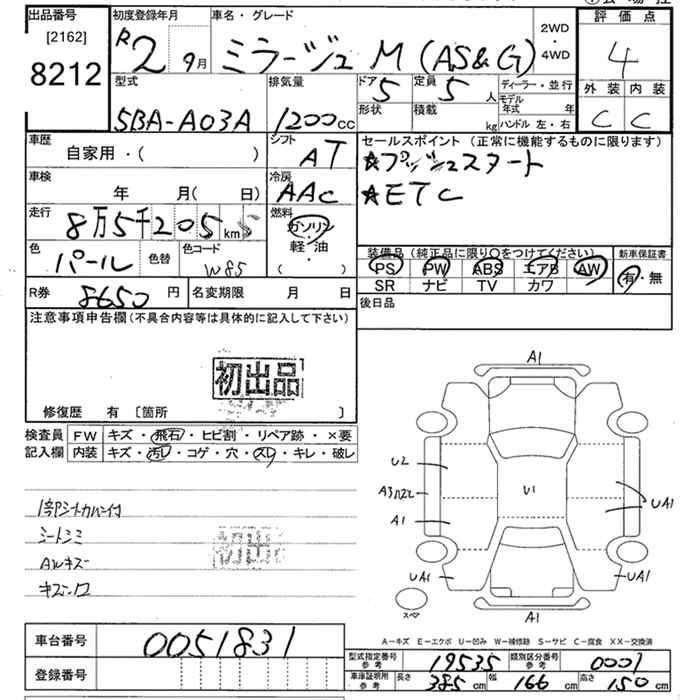 出品番号 初度登録年月 車名・グレード 評価点
[2162] R2 9月 ミラージュ M (AS&G) 2WD・4WD 4
8212
型式 排気量 ドア 5 定員 5人 ディーラー・並行 外装 内装
5BA-A03A 1200cc 形状 積載 kg モデル年式 年 C C
ハンドル 左・右
車歴 シフト セールスポイント (正常に機能するものに限ります)
自家用・( ) AT ★プッシュスタート
車検 冷房 ★ETC
年 月( 日) AAC
走行 燃料
8万5千205km ガソリン・軽・油
色 色替 色コード ( ) 装備品(純正品に限り〇をつけてください) 新車保証書
パール W85 PS PW ABS エアB AW 有・無
SR ナビ TV カワ
R券 8650円 名変期限 月 日 後日品
注意事項申告欄(不具合内容等は具体的に記入して下さい)
初出品
修復歴 有 〔箇所 〕
検査員 FW キズ・飛石・ヒビ割・リペア跡・×要
記入欄 内装 キズ・汚レ・コゲ・穴・スレ・キレ・破レ
1部シートカバー付
シートシミ
AWキズ
初出品
A1
U2
A3
A1
U1
UA1
UA1
UA1
A1
スペア
車台番号 0051831
登録番号
A-キズ E-エクボ U-凹み W-補修跡 S-サビ C-腐食 XX-交換済
型式指定番号 参考 19535 類別区分番号 参考 0001
車庫証明用 参考 長さ 385cm 幅 166cm 高さ 150cm